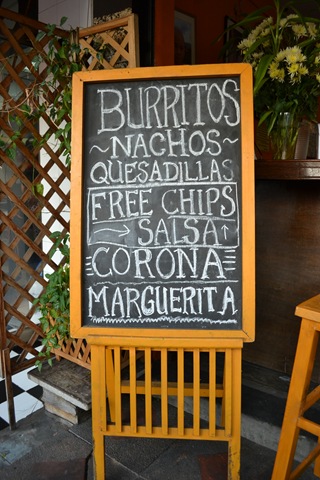 BURRITOS
~ NACHOS ~
QUESADILLAS
FREE CHIPS
→ SALSA ↑
CORONA
MARGUERITA